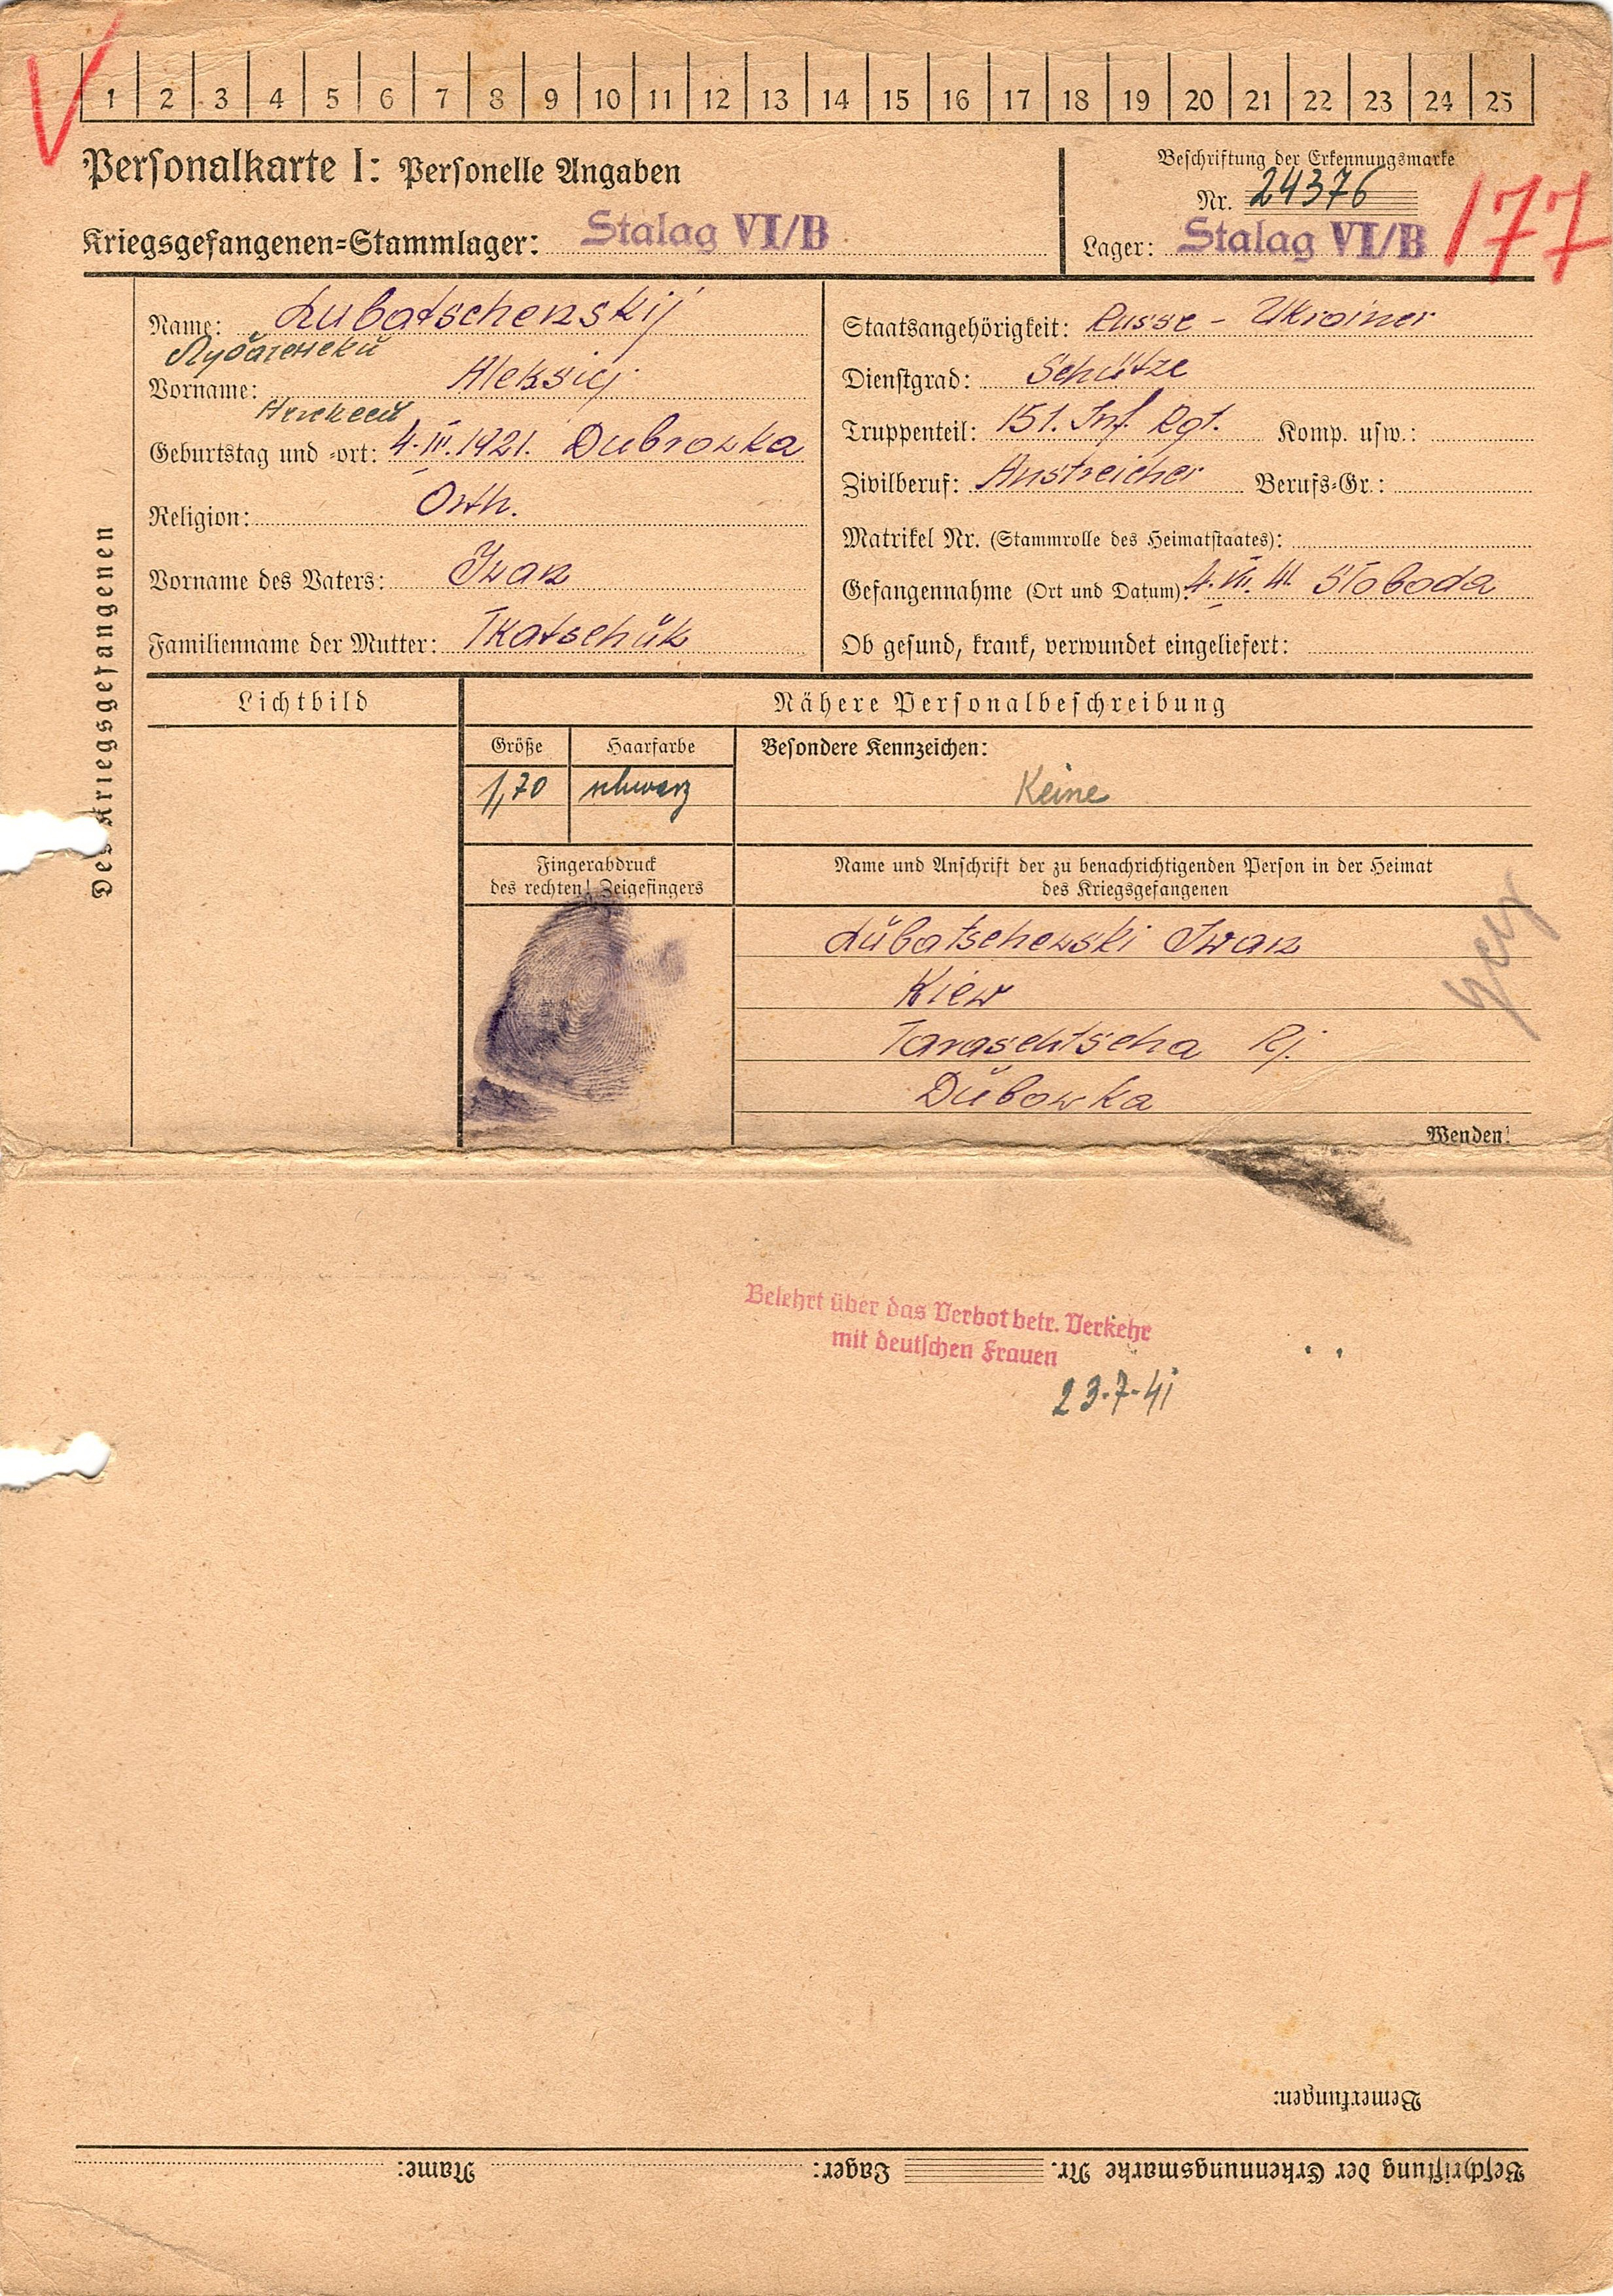 1 2 3 4 5 6 7 8 9 10 11 12 13 14 15 16 17 18 19 20 21 22 23 24 25
Personalkarte I: Personelle Angaben
Beschriftung der Erkennungsmarke
Nr. 24376
177
Kriegsgefangenen=Stammlager: Stalag VI/B
Lager: Stalag VI/B
Des Kriegsgefangenen
Name: Lubatschenskij
Vorname: Aleksiej
Алексей
Geburtstag und -ort: 4.III.1921. Dubrowka
Religion: Orth.
Vorname des Vaters: Iwan
Familienname der Mutter: Tkatschük
Staatsangehörigkeit: Russe - Ukrainer
Dienstgrad: Schütze
Truppenteil: 151. Inf. Rgt. Komp. usw.:
Zivilberuf: Anstreicher Berufs=Gr.:
Matrikel Nr. (Stammrolle des Heimatstaates):
Gefangennahme (Ort und Datum): 41 Sloboda
Ob gesund, krank, verwundet eingeliefert:
Lichtbild
Nähere Personalbeschreibung
Größe Haarfarbe Besondere Kennzeichen:
1,70 schwarz Keine
Fingerabdruck
des rechten! Zeigefingers
Name und Anschrift der zu benachrichtigenden Person in der Heimat
des Kriegsgefangenen
Lübatschewski Iwan
Kiew
Taraschtscha Rj.
Dübowka
Wenden!
Belehrt über das Verbot betr. Verkehr
mit deutschen Frauen
23.7.41
Bemerkungen:
Beschriftung der Erkennungsmarke Nr. Lager: Name: